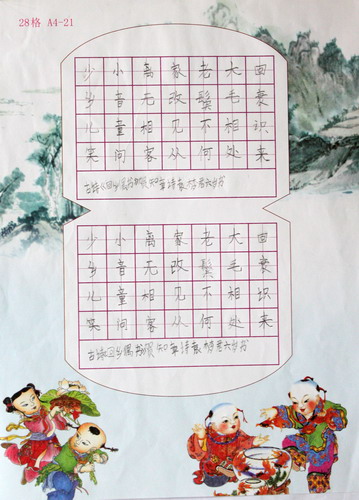 28格 A4-21
少小离家老大回
乡音无改鬓毛衰
儿童相见不相识
笑问客从何处来
古诗回乡偶书
少小离家老大回
乡音无改鬓毛衰
儿童相见不相识
笑问客从何处来
古诗回乡偶书